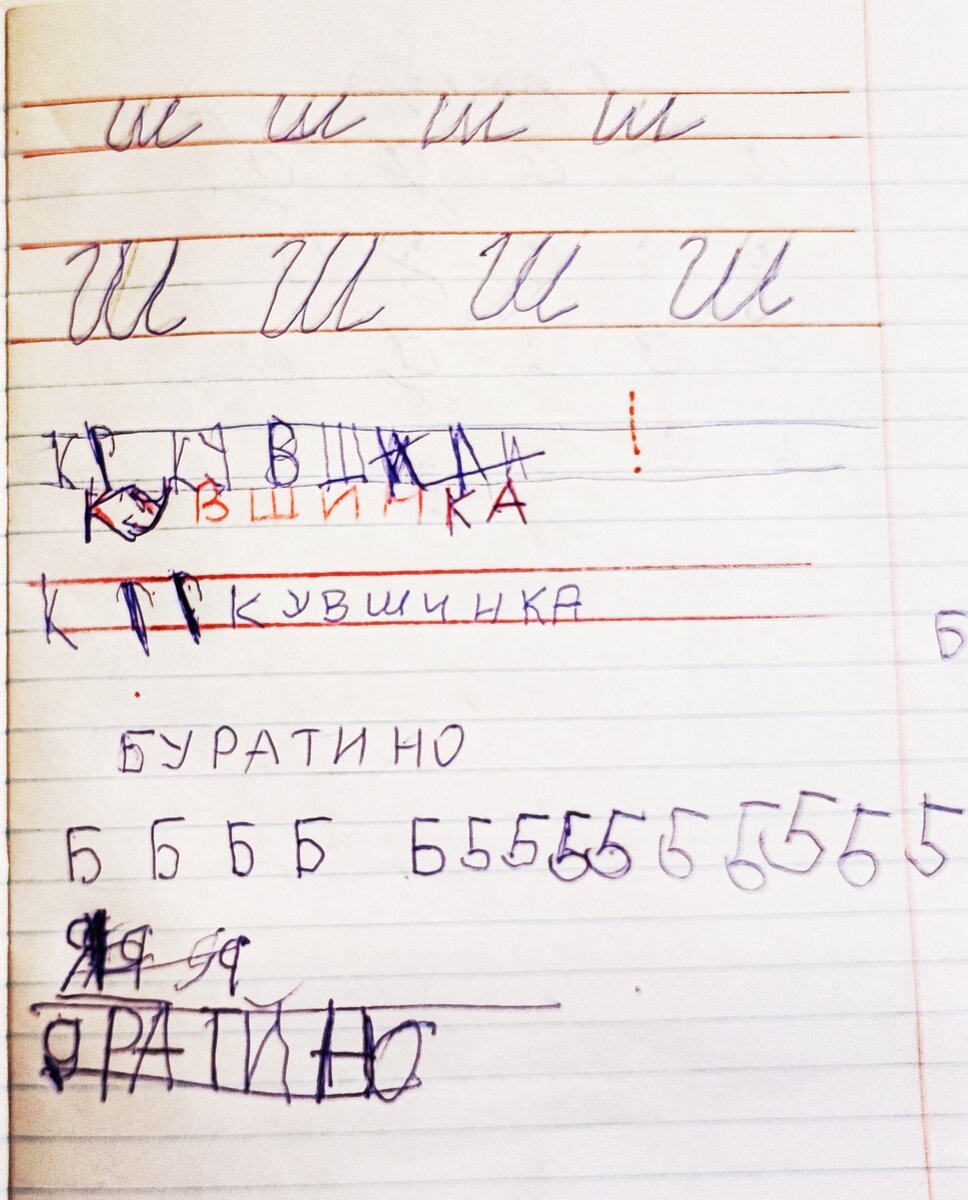 ш ш ш ш
Ш Ш Ш Ш
К КУВШ !
КУВШИНКА
К Г Г КУВШИНКА
Б
БУРАТИНО
Б Б Б Б Б Б Б Б Б Б Б Б Б Б
Я Я Я Я
РАТЙНО